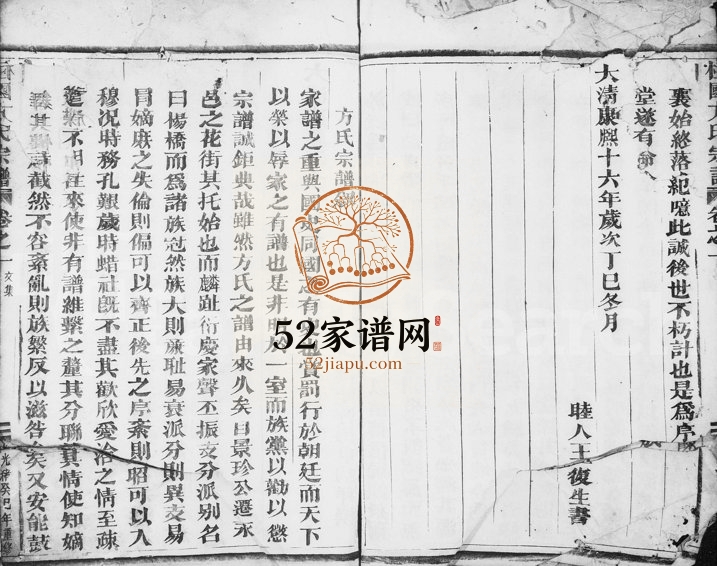 裏始終落範噫此誠後世不朽計也是為序
堂遂有
大清康熙十六年歲次丁巳冬月
睦人王復生書
方氏宗譜
家譜之重與國史同國史有也賞罰行於朝廷而天下
以榮以辱家之有譜也是非於一室而族黨以勸以懲
宗譜誠鉅典哉雖然方氏之譜由來久矣曰景珍公遷永
邑之花街其托始也而麟趾衍慶家聲丕振支分派別名
曰楊橋而為諸族冠然族大則廉恥易衰派分則異交易
冒嫡庶之失倫則偏可以齊正後先之序紊則昭可以入
穆況時務孔艱歲時蜡社既不盡其歡欣愛洽之情至疎
不明往來使非有譜維繫之釐其分聯其情使知嫡
其截然不容紊亂則族繁反以滋咎矣又安能鼓
方氏宗譜
卷之一
文集
光緒癸巳年重修
方氏宗譜
卷之一
52家谱网
52jiapu.com